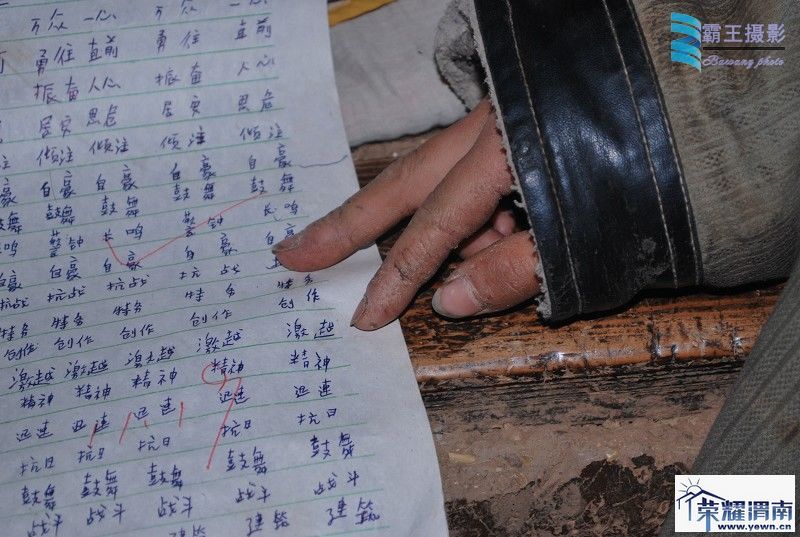 万众 一心 万众 一心
勇往 直前 勇往 直前
振奋 人心 振奋 人心
居安 思危 居安 思危
倾注 倾注 倾注 倾注
自豪 自豪 自豪 自豪
鼓舞 鼓舞 鼓舞 鼓舞
警钟 长鸣 警钟 长鸣
自豪 自豪 自豪 自
抗战 抗战 抗战 抗战
特务 特务 特务 特务 特务
创作 创作 创作 创作 创作
激越 激越 激越 激越 激越
精神 精神 精神 精神 精神
迅速 迅速 迅速 迅速 迅速
抗日 抗日 抗日 抗日 抗日
鼓舞 鼓舞 鼓舞 鼓舞 鼓舞
战斗 战斗 战斗 战斗 战斗
建筑 建筑 建筑
霸王摄影
Bawang photo
荣耀渭南
www.yewn.cn